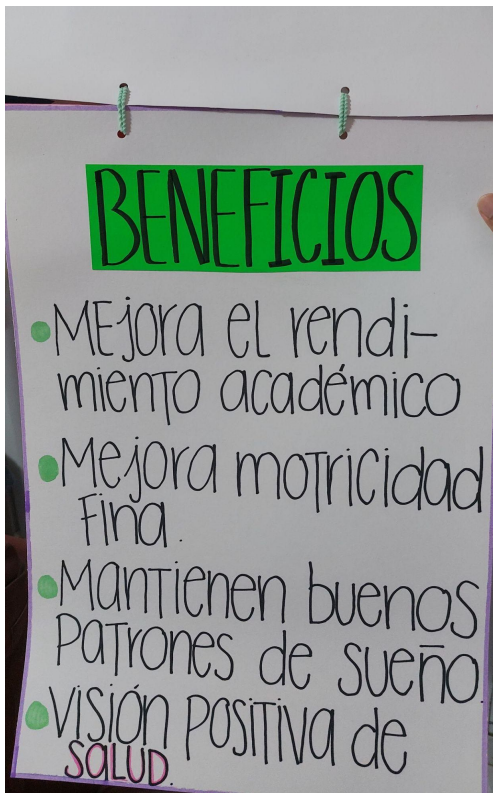 BENEFICIOS
• MEjora el rendi-
miento académico
• Mejora motricidad
fina.
• Mantienen buenos
patrones de sueño.
• Visión positiva de
SALUD.